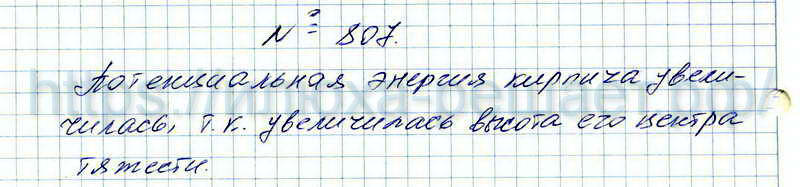 № 807.
Потенциальная энергия кирпича увели-
чилась, т.к. увеличилась высота его центра
тяжести.